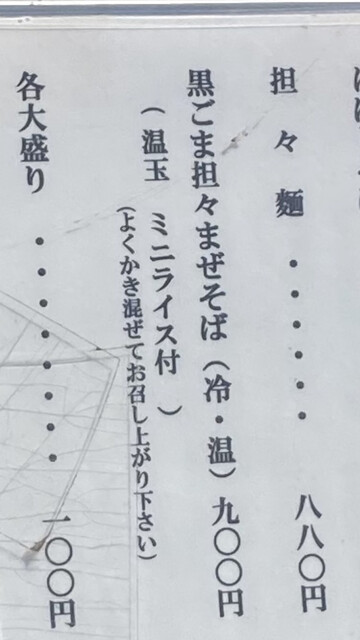 担々麺・・・・・・八八〇円
黒ごま担々まぜそば（冷・温）九〇〇円
（温玉 ミニライス付）
（よくかき混ぜてお召し上がり下さい）
各大盛り・・・・・・・・一〇〇円